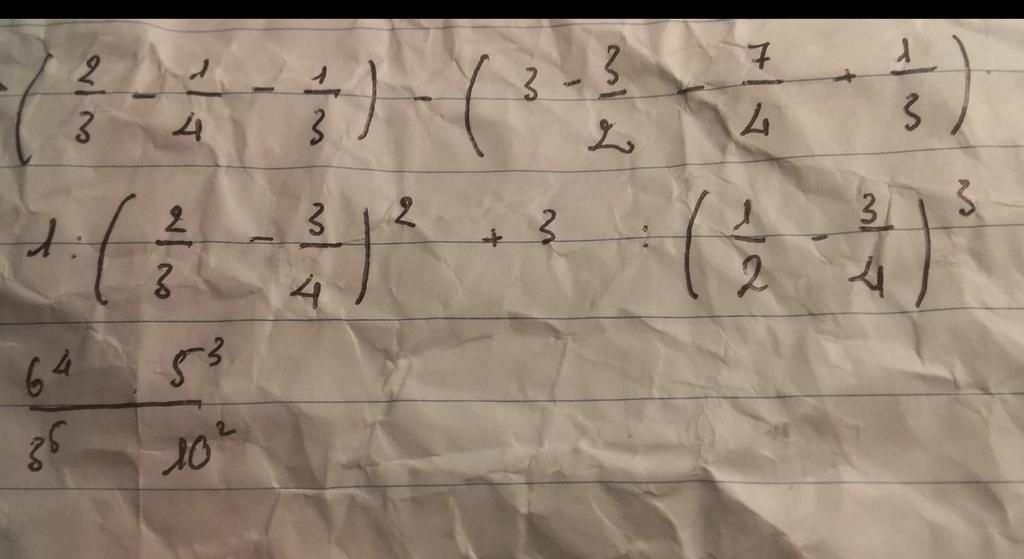 - (2/3 - 1/4 - 1/3) - (3 - 3/2 - 7/4 + 1/3)
1 : (2/3 - 3/4)² + 3 : (1/2 - 3/4)³
6⁴ . 5³
3⁵ 10²